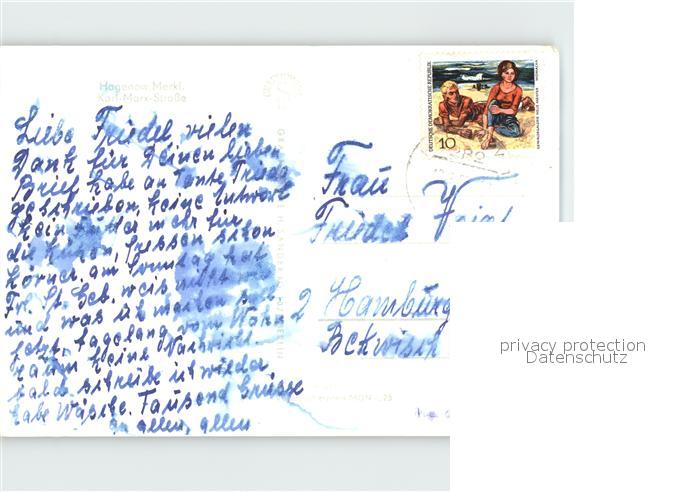 Hagenow Merkl.
Karl-Marx-Straße
Liebe Friedel vielen
Dank für Deinen lieben
Brief habe an Tante Frieda
geschrieben, keine Antwort
kein Futter mehr für
die Küken, fressen schon
Körner. am Sonntag hat
Fr. St. Geb. weis nicht
und was ich machen soll
jetzt. tagelang vom
kaum keine Nachricht.
bald schreibe ich wieder
habe Wäsche. Tausend Grüsse
an allen, allen
DEUTSCHE DEMOKRATISCHE REPUBLIK
10
Frau
Friedel
2 Hamburg
Bekwisch
privacy protection
Datenschutz